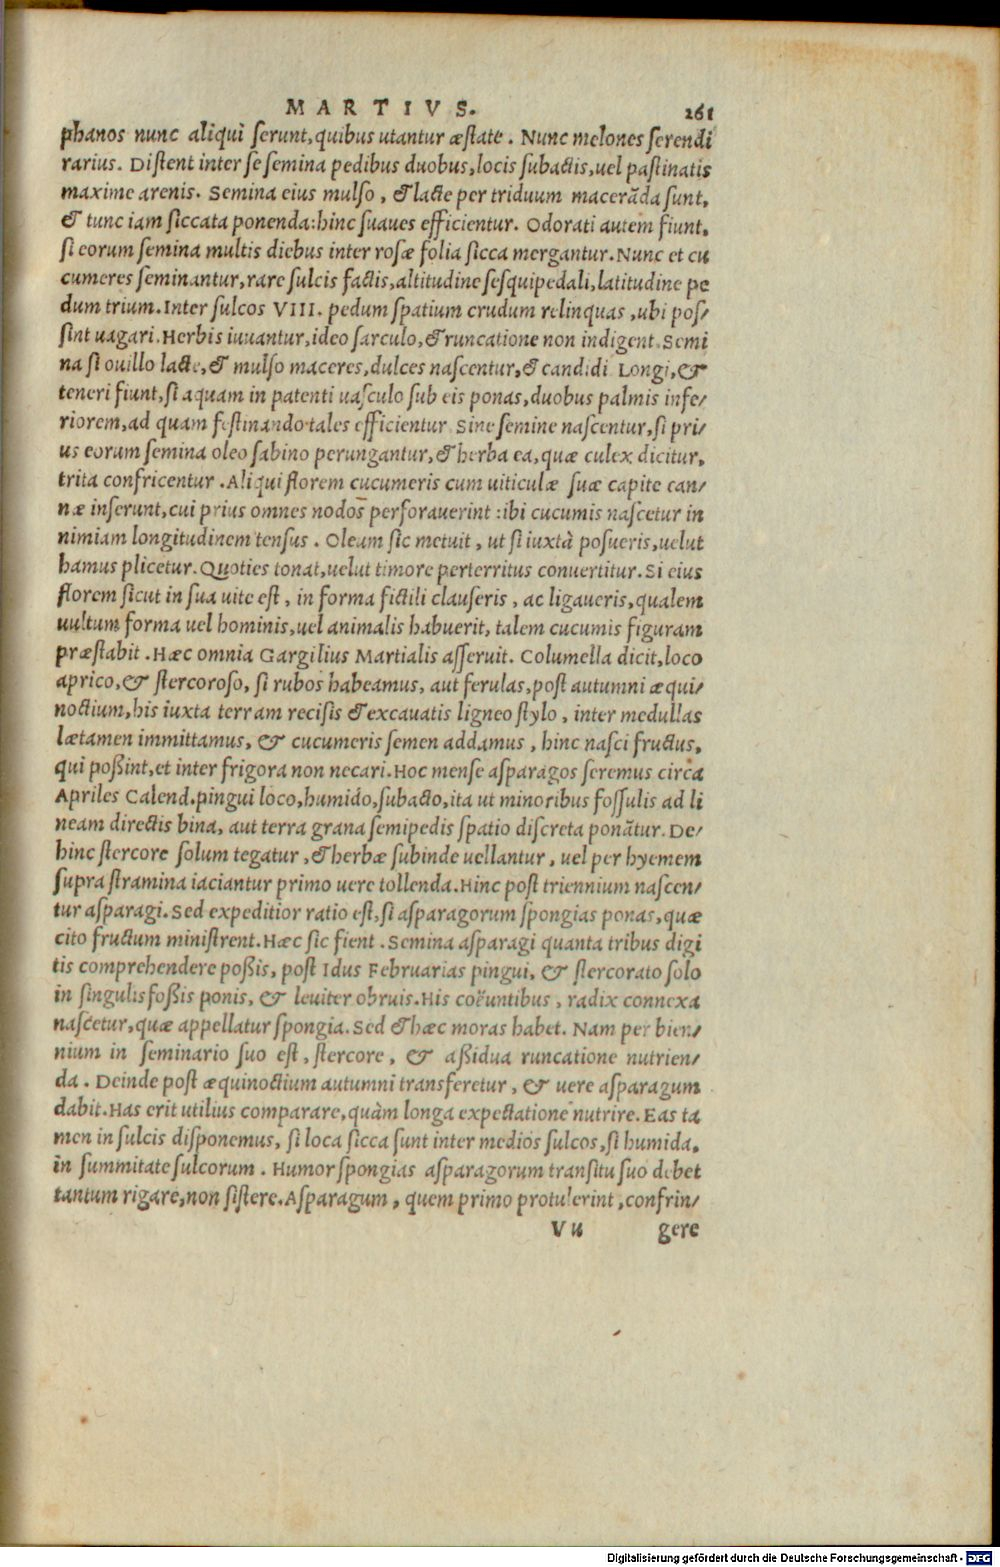 MARTIVS. 261
phanos nunc aliqui serunt, quibus utantur æstate. Nunc melones serendi
rarius. Distent inter se semina pedibus duobus, locis subactis, uel pastinatis
maxime arenis. Semina eius mulso, & lacte per triduum macerãda sunt,
& tunc iam siccata ponenda: hinc suaues efficientur. Odorati autem fiunt,
si eorum semina multis diebus inter rosæ folia sicca mergantur. Nunc et cu
cumeres seminantur, rare sulcis factis, altitudine sesquipedali, latitudine pe
dum trium. Inter sulcos VIII. pedum spatium crudum relinquas, ubi pos/
sint uagari. Herbis iuuantur, ideo sarculo, & runcatione non indigent. Semi
na si ouillo lacte, & mulso maceres, dulces nascentur, & candidi Longi, &
teneri fiunt, si aquam in patenti uasculo sub eis ponas, duobus palmis infe/
riorem, ad quam festinando tales efficientur Sine semine nascentur, si pri/
us eorum semina oleo sabino perungantur, & herba ea, quæ culex dicitur,
trita confricentur. Aliqui florem cucumeris cum uiticulæ suæ capite can/
næ inserunt, cui prius omnes nodos perforauerint: ibi cucumis nascetur in
nimiam longitudinem tensus. Oleam sic metuit, ut si iuxtà posueris, uelut
hamus plicetur. Quoties tonat, uelut timore perterritus conuertitur. Si eius
florem sicut in sua uite est, in forma fictili clauseris, ac ligaueris, qualem
uultum forma uel hominis, uel animalis habuerit, talem cucumis figuram
præstabit. Hæc omnia Gargilius Martialis asseruit. Columella dicit, loco
aprico, & stercoroso, si rubos habeamus, aut ferulas, post autumni æqui/
noctium, his iuxta terram recisis & excauatis ligneo stylo, inter medullas
lætamen immittamus, & cucumeris semen addamus, hinc nasci fructus,
qui poßint, et inter frigora non necari. Hoc mense asparagos seremus circa
Apriles Calend. pingui loco, humido, subacto, ita ut minoribus fossulis ad li
neam directis bina, aut terra grana semipedis spatio discreta ponãtur. De/
hinc stercore solum tegatur, & herbæ subinde uellantur, uel per hyemem
supra stramina iaciantur primo uere tollenda. Hinc post triennium nascen/
tur asparagi. Sed expeditior ratio est, si asparagorum spongias ponas, quæ
cito fructum ministrent. Hæc sic fient. Semina asparagi quanta tribus digi
tis comprehendere poßis, post Idus Februarias pingui, & stercorato solo
in singulis foßis ponis, & leuiter obruis. His coëuntibus, radix connexa
nascetur, quæ appellatur spongia. Sed & hæc moras habet. Nam per bien/
nium in seminario suo est, stercore, & aßidua runcatione nutrien/
da. Deinde post æquinoctium autumni transferetur, & uere asparagum
dabit. Has erit utilius comparare, quàm longa expectatione nutrire. Eas ta
men in sulcis disponemus, si loca sicca sunt inter medios sulcos, si humida,
in summitate sulcorum. Humor spongias asparagorum transitu suo debet
tantum rigare, non sistere. Asparagum, quem primo protulerint, confrin/
Vu gere
Digitalisierung gefördert durch die Deutsche Forschungsgemeinschaft - DFG